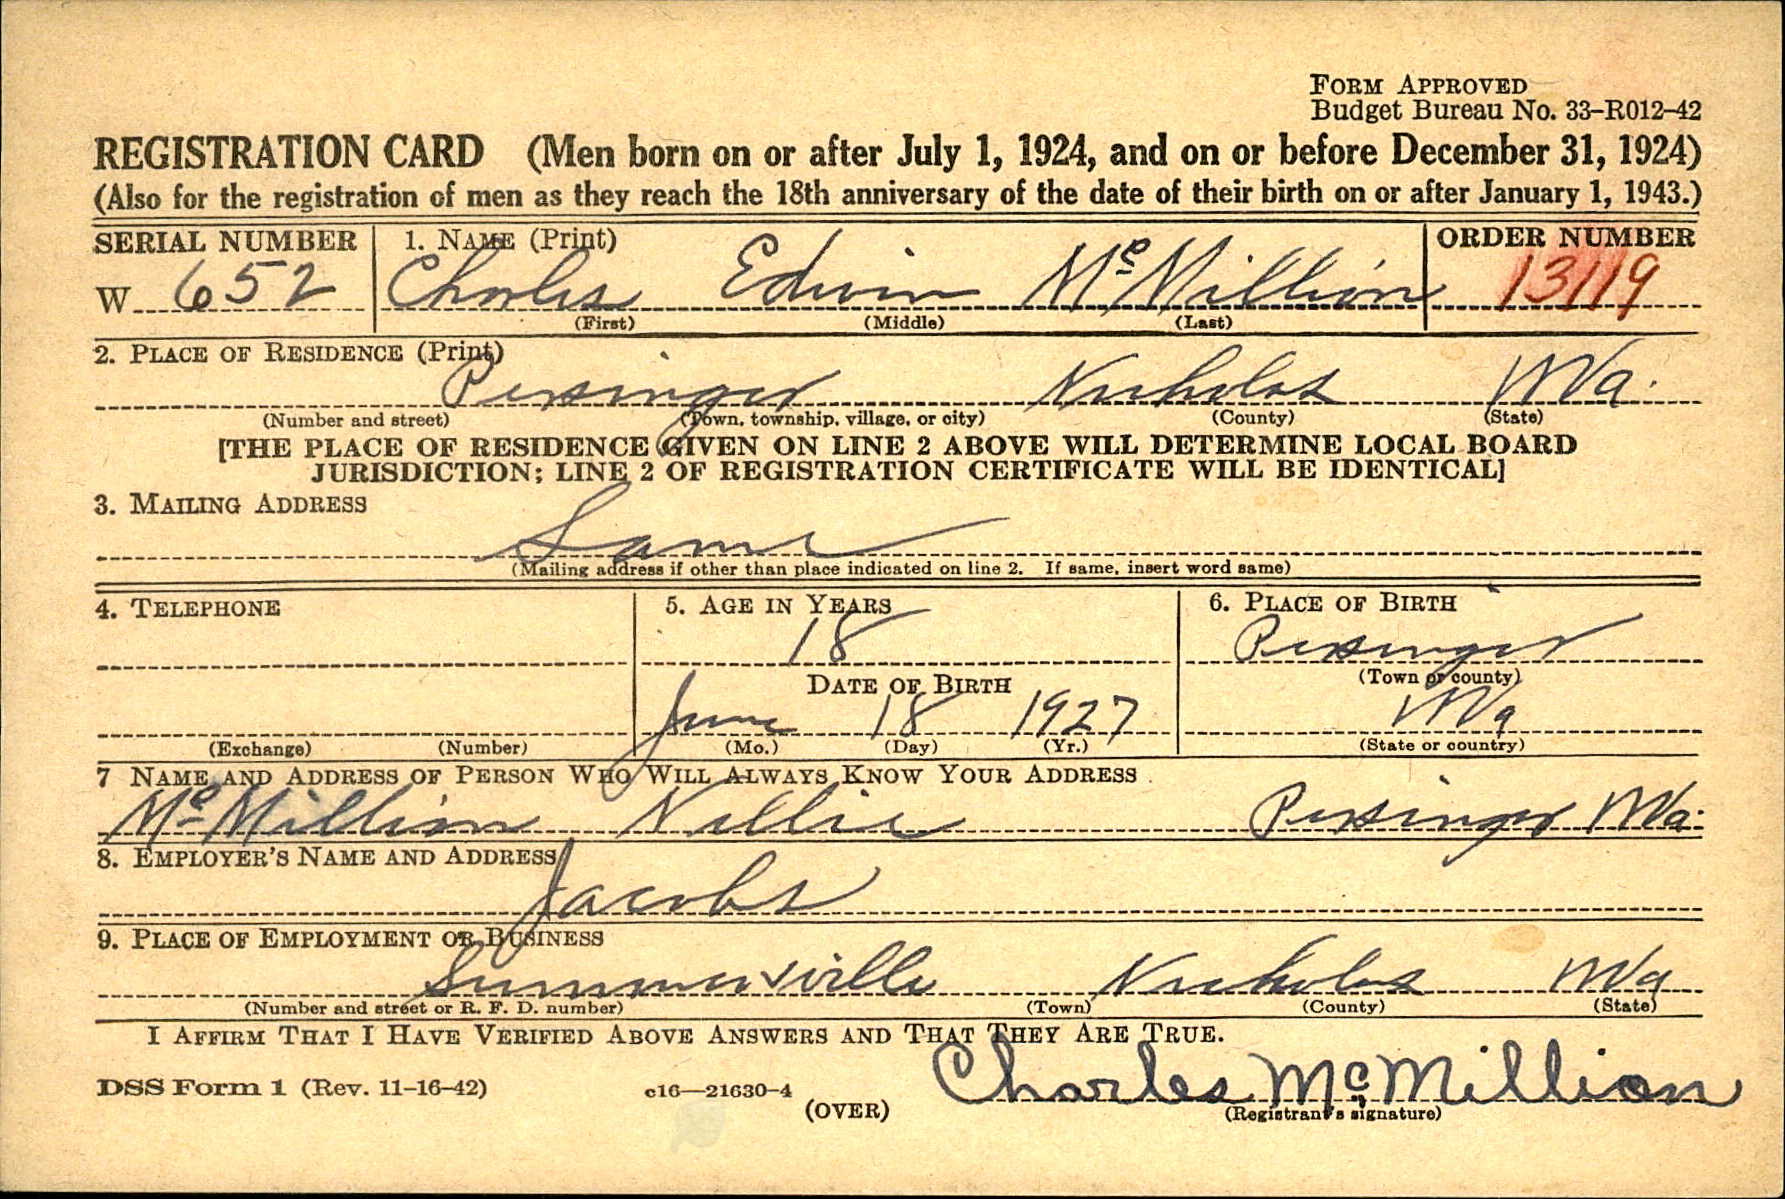 FORM APPROVED
Budget Bureau No. 33-R012-42
REGISTRATION CARD (Men born on or after July 1, 1924, and on or before December 31, 1924)
(Also for the registration of men as they reach the 18th anniversary of the date of their birth on or after January 1, 1943.)
SERIAL NUMBER 1. NAME (Print) ORDER NUMBER
W 652 Charles Edwin McMillion 13119
(First) (Middle) (Last)
2. PLACE OF RESIDENCE (Print)
Persinger Nicholas W Va.
(Number and street) (Town, township, village, or city) (County) (State)
[THE PLACE OF RESIDENCE GIVEN ON LINE 2 ABOVE WILL DETERMINE LOCAL BOARD
JURISDICTION; LINE 2 OF REGISTRATION CERTIFICATE WILL BE IDENTICAL]
3. MAILING ADDRESS
Same
(Mailing address if other than place indicated on line 2. If same, insert word same)
4. TELEPHONE 5. AGE IN YEARS 6. PLACE OF BIRTH
18 Persinger
DATE OF BIRTH (Town or county)
June 18 1927 W Va
(Exchange) (Number) (Mo.) (Day) (Yr.) (State or country)
7 NAME AND ADDRESS OF PERSON WHO WILL ALWAYS KNOW YOUR ADDRESS
McMillion Nellie Persinger W Va.
8. EMPLOYER'S NAME AND ADDRESS
Jacobs
9. PLACE OF EMPLOYMENT OR BUSINESS
Summersville Nicholas W Va
(Number and street or R. F. D. number) (Town) (County) (State)
I AFFIRM THAT I HAVE VERIFIED ABOVE ANSWERS AND THAT THEY ARE TRUE.
Charles McMillion
DSS Form 1 (Rev. 11-16-42) c16—21630-4 (OVER) (Registrant's signature)